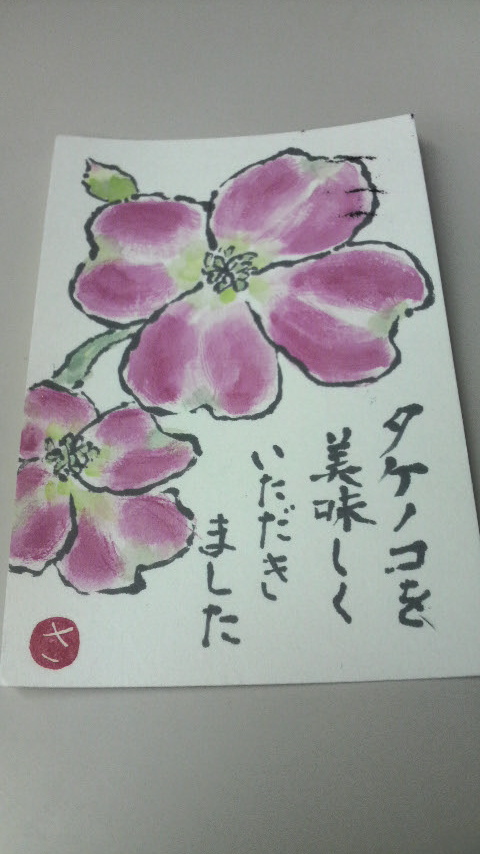 タケノコを
美味しく
いただき
ました
さ